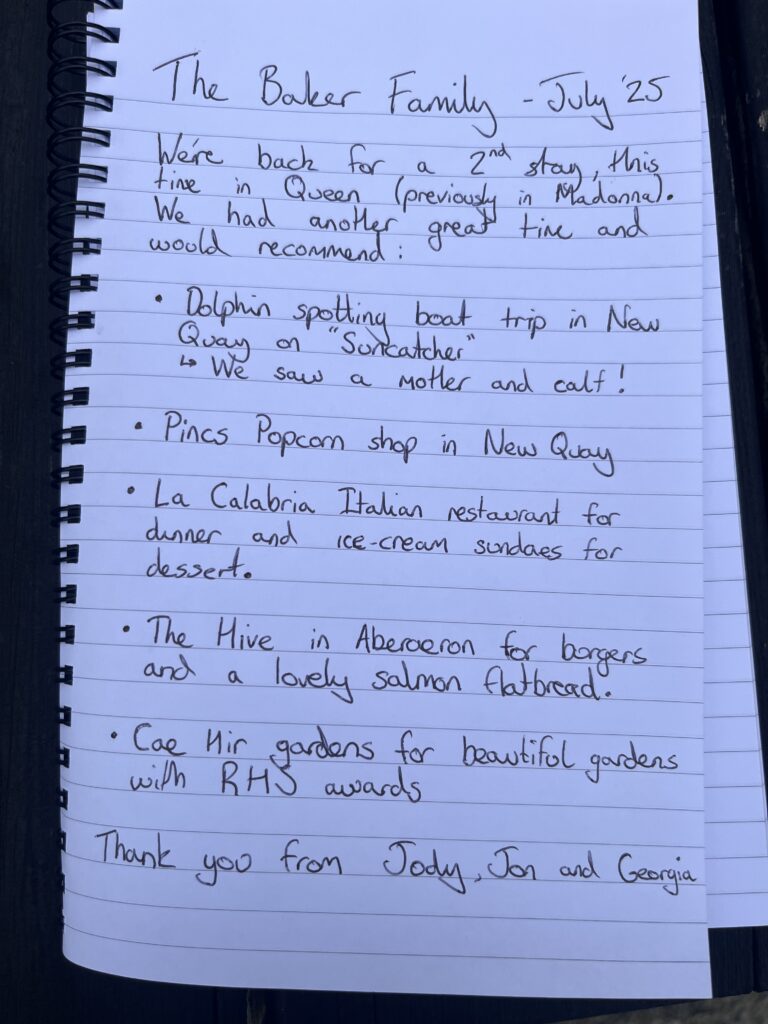 The Baker Family - July '25
We're back for a 2nd stay, this
time in Queen (previously in Madonna).
We had another great time and
would recommend:
• Dolphin spotting boat trip in New
Quay on "Suncatcher"
↳ We saw a mother and calf!
• Pincs Popcorn shop in New Quay
• La Calabria Italian restaurant for
dinner and ice-cream sundaes for
dessert.
• The Hive in Aberaeron for burgers
and a lovely salmon flatbread.
• Cae Hir gardens for beautiful gardens
with RHS awards
Thank you from Jody, Jon and Georgia